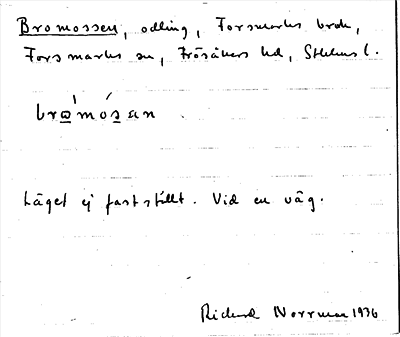 Bromossen, odling, Forsmarks bruk,
Forsmarks sn, Frösåkers hd, Sthlms l.
brω̲´mós̲an
Läget ej fastställt. Vid en väg.
Rickard Norrman 1936